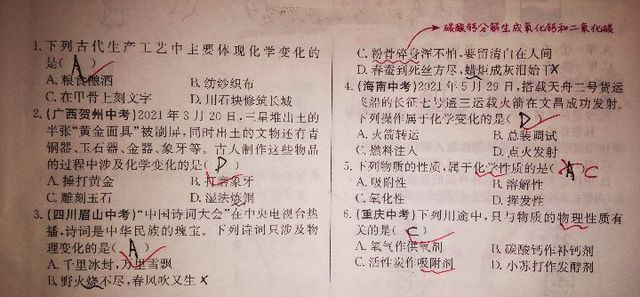 碳酸钙分解生成氧化钙和二氧化碳
1. 下列古代生产工艺中主要体现化学变化的
是( A )
A. 粮食酿酒 B. 纺纱织布
C. 在甲骨上刻文字 D. 川石块修筑长城
2. (广西贺州中考)2021年3月20日,三星堆出土的
半张“黄金面具”被刷屏,同时出土的文物还有青
铜器、玉石器、金器、象牙等。古人制作这些物品
的过程中涉及化学变化的是( D )
A. 捶打黄金 B. 打磨象牙
C. 雕刻玉石 D. 湿法炼铜
3. (四川眉山中考)“中国诗词大会”在中央电视台热
播,诗词是中华民族的瑰宝。下列诗词只涉及物
理变化的是( A )
A. 千里冰封,万里雪飘
B. 野火烧不尽,春风吹又生 ×
C. 粉骨碎身浑不怕,要留清白在人间
D. 春蚕到死丝方尽,蜡炬成灰泪始干 ×
4. (海南中考)2021年5月29日,搭载天舟二号货运
飞船的长征七号遥三运载火箭在文昌成功发射。
下列操作属于化学变化的是( D )
A. 火箭转运 B. 总装调试
C. 燃料注入 D. 点火发射
5. 下列物质的性质,属于化学性质的是( A ) C
A. 吸附性 B. 溶解性
C. 氧化性 D. 挥发性
6. (重庆中考)下列用途中,只与物质的物理性质有
关的是( C )
A. 氧气作供氧剂 B. 碳酸钙作补钙剂
C. 活性炭作吸附剂 D. 小苏打作发酵剂